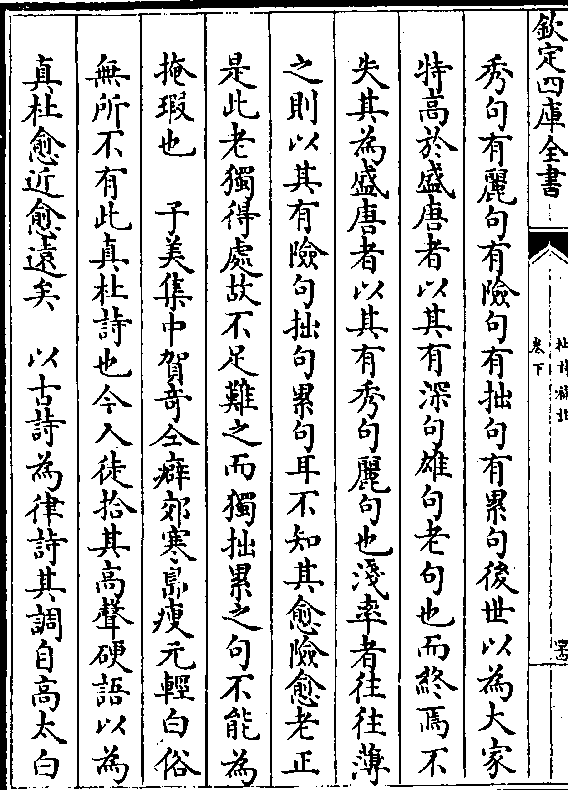 欽定四庫全書
卷下
秀句有麗句有險句有拙句有累句後世以為大家
特高於盛唐者以其有深句雄句老句也而終焉不
失其為盛唐者以其有秀句麗句也淺率者往往薄
之則以其有險句拙句累句耳不知其愈險愈老正
是此老獨得處故不足難之而獨拙累之句不能為
掩瑕也 子美集中賀竒仝癖郊寒島瘦元輕白俗
無所不有此真杜詩也今人徒拾其高聲硬語以為
真杜愈近愈遠矣 以古詩為律詩其調自高太白